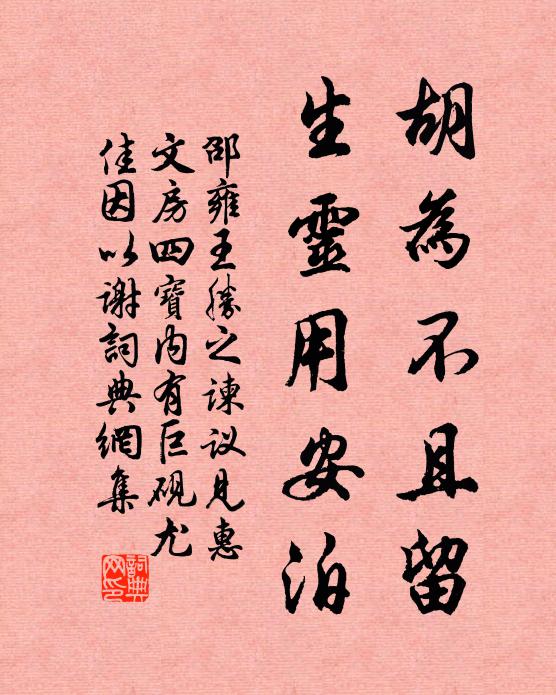 胡為不且留
生靈用安泊
邵雍王勝之諫议見惠
文房四寶内有巨硯尤
佳因以谢詞典網集
詞典网印